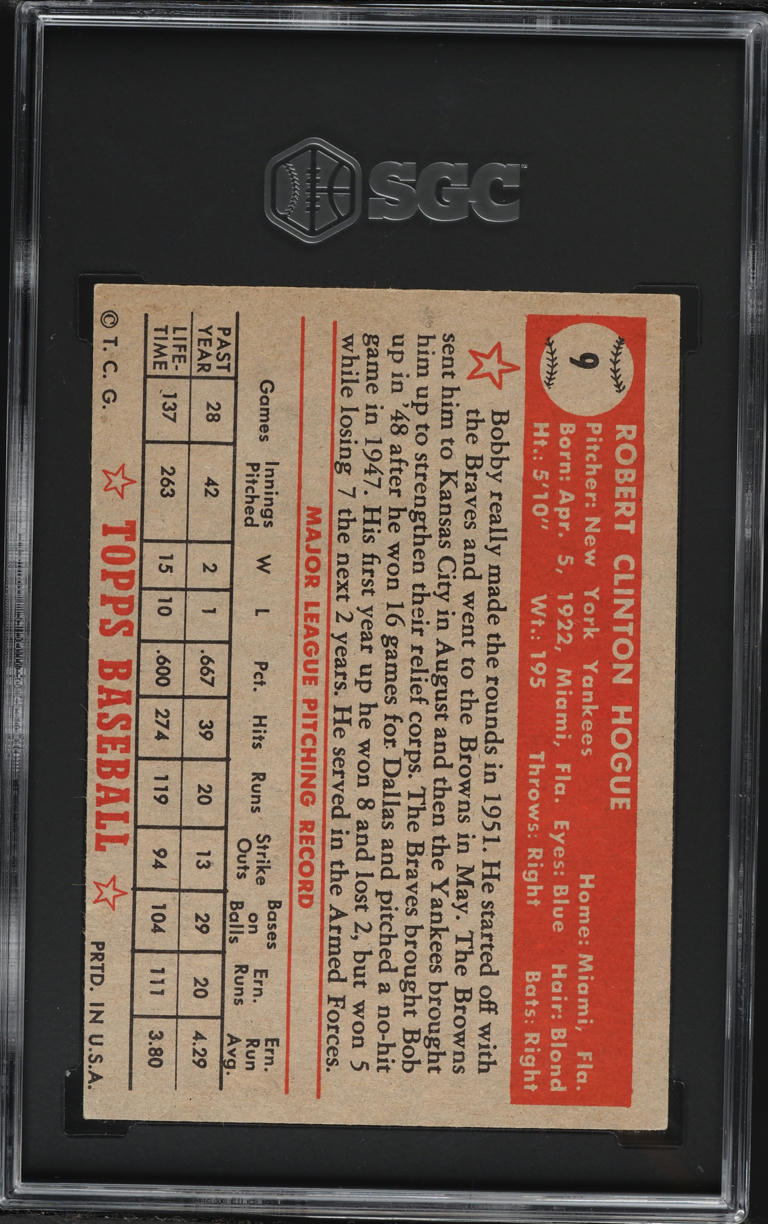 SGC
9
ROBERT CLINTON HOGUE
Pitcher: New York Yankees Home: Miami, Fla.
Born: Apr. 5, 1922, Miami, Fla. Eyes: Blue Hair: Blond
Ht.: 5'10" Wt.: 195 Throws: Right Bats: Right
Bobby really made the rounds in 1951. He started off with
the Braves and went to the Browns in May. The Browns
sent him to Kansas City in August and then the Yankees brought
him up to strengthen their relief corps. The Braves brought Bob
up in '48 after he won 16 games for Dallas and pitched a no-hit
game in 1947. His first year up he won 8 and lost 2, but won 5
while losing 7 the next 2 years. He served in the Armed Forces.
MAJOR LEAGUE PITCHING RECORD
Games Innings Pitched W L Pct. Hits Runs Strike Outs Bases on Balls Ern. Runs Ern. Run Avg.
PAST YEAR 28 42 2 1 .667 39 20 13 29 20 4.29
LIFE-TIME 137 263 15 10 .600 274 119 94 104 111 3.80
© T. C. G. TOPPS BASEBALL PRTD. IN U.S.A.